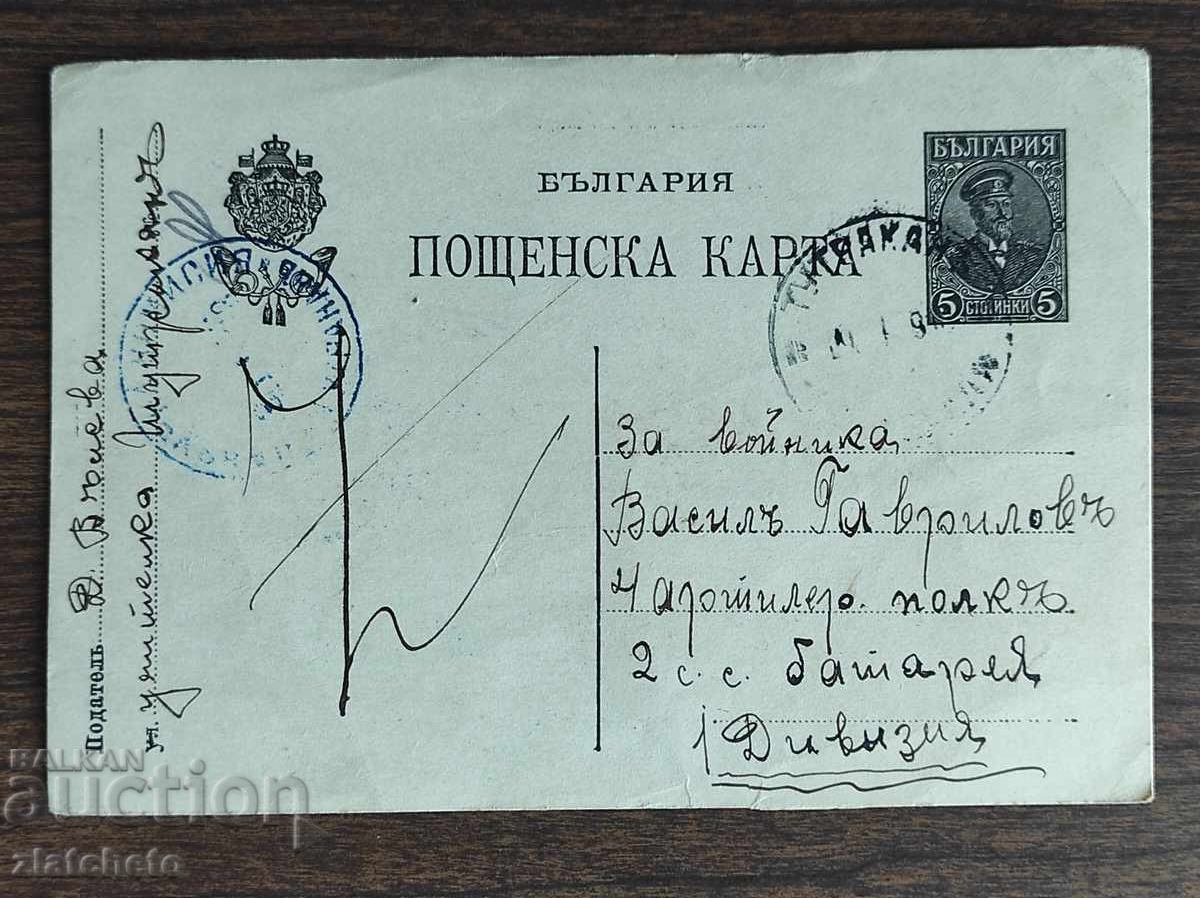 БЪЛГАРИЯ
ПОЩЕНСКА КАРТА
БЪЛГАРИЯ
5 СТОТИНКИ 5
За войника
Василъ Гавриловъ
4 артилер. полкъ
2 с. с. батарея
1 Дивизия
Податель Д. Вълева
ул. учителка
BALKAN
auction
zlatcheto